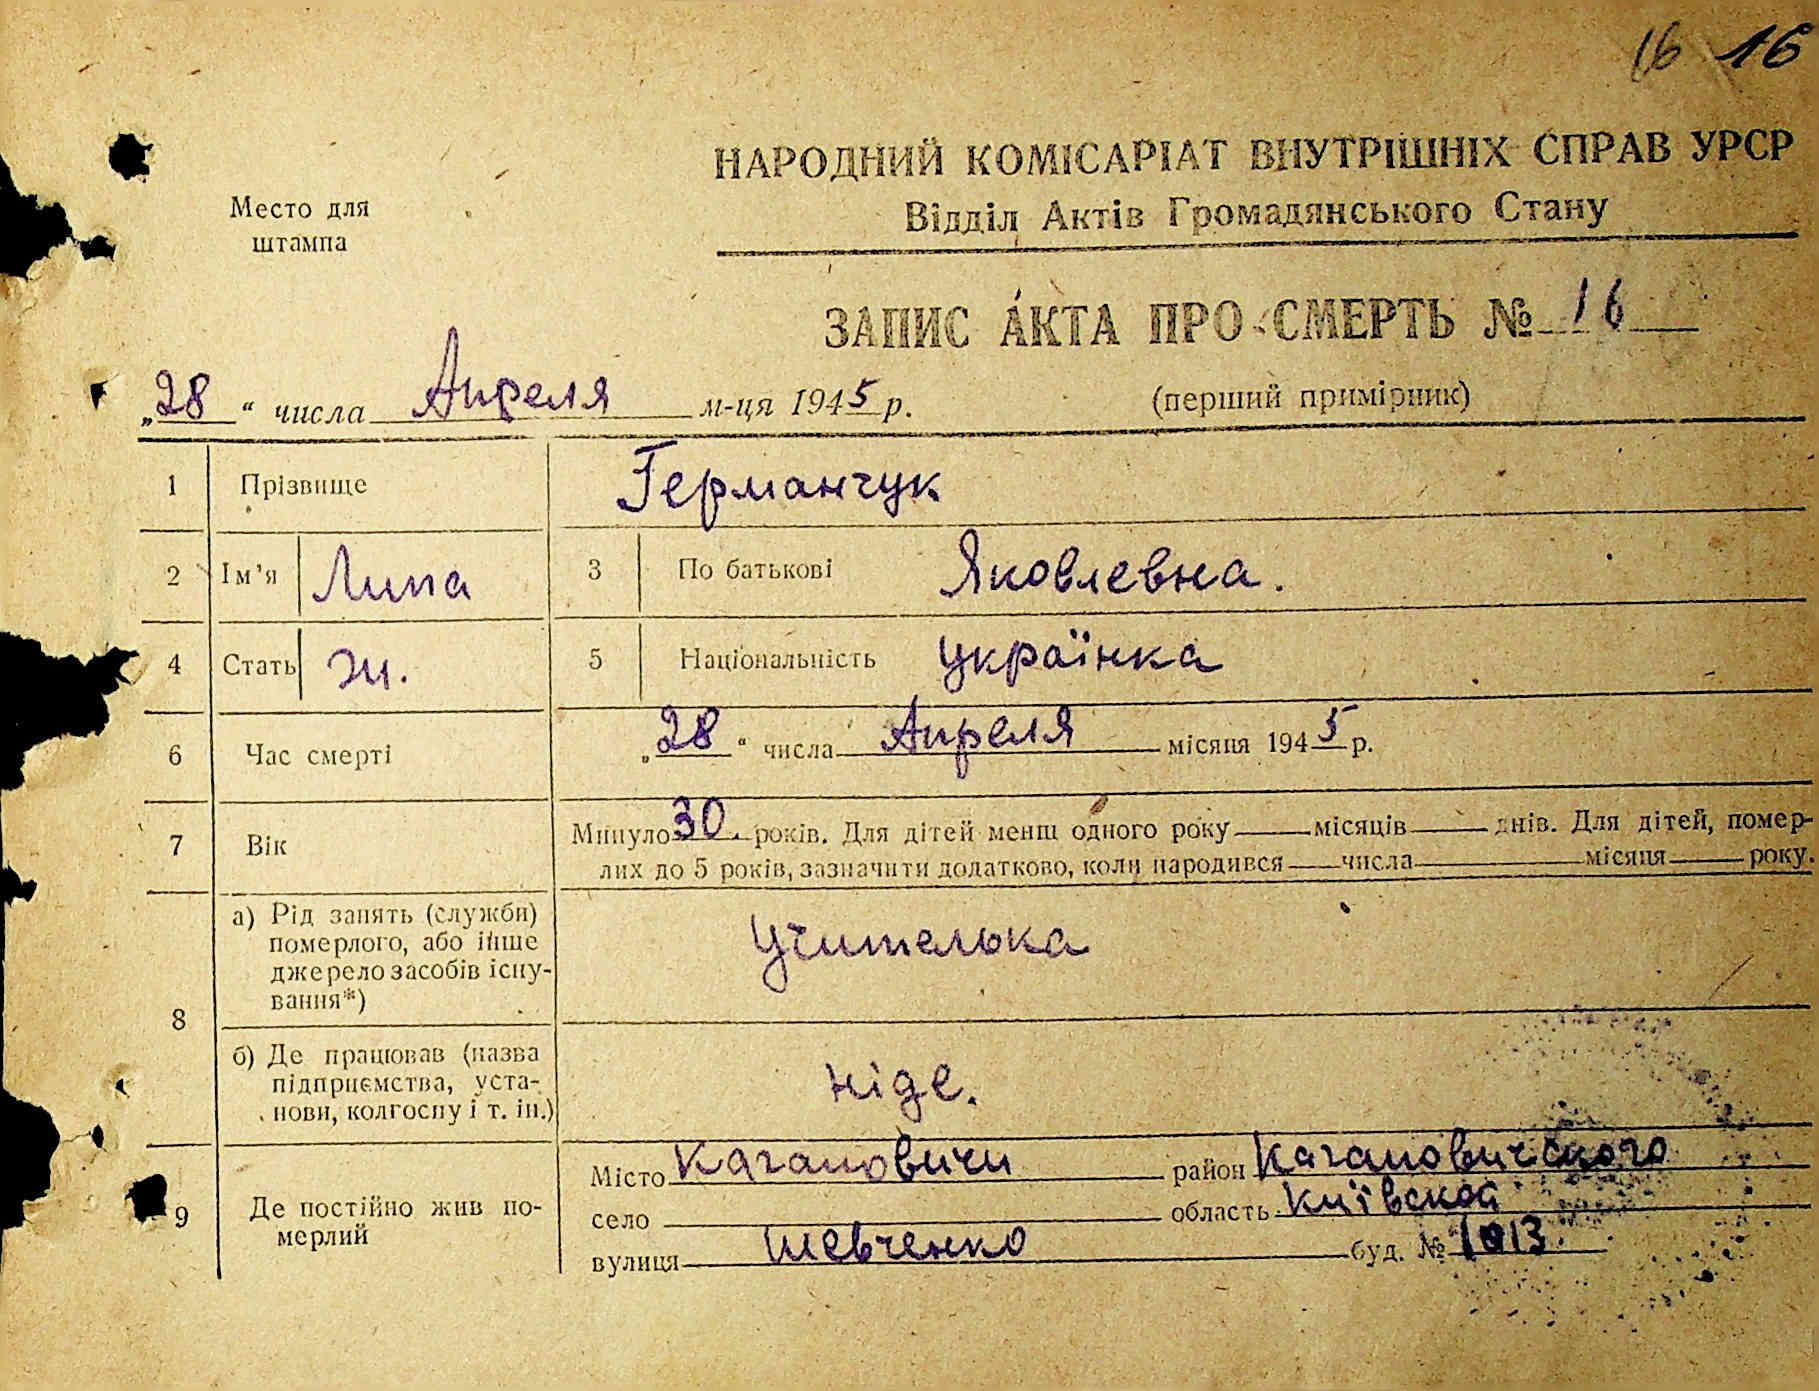 16 16
НАРОДНИЙ КОМІСАРІАТ ВНУТРІШНІХ СПРАВ УРСР
Відділ Актів Громадянського Стану
Место для
штампа
ЗАПИС АКТА ПРО СМЕРТЬ № 16
„28“ числа Апреля м-ця 1945 р.
(перший примірник)
1 Прізвище Германчук
2 Ім’я Липа 3 По батькові Яковлевна.
4 Стать ж. 5 Національність українка
6 Час смерті „28“ числа Апреля місяця 1945 р.
7 Вік Минуло 30. років. Для дітей менш одного року місяців днів. Для дітей, помер-
лих до 5 років, зазначити додатково, коли народився числа місяця року.
8 а) Рід занять (служби)
померлого, або інше
джерело засобів існу-
вання*)
Учителька
б) Де працював (назва
підприємства, уста-
нови, колгоспу і т. ін.)
ніде.
9 Де постійно жив по-
мерлий
Місто Кагановичи район Кагановичского
село область Київской
вулиця Шевченко буд. №